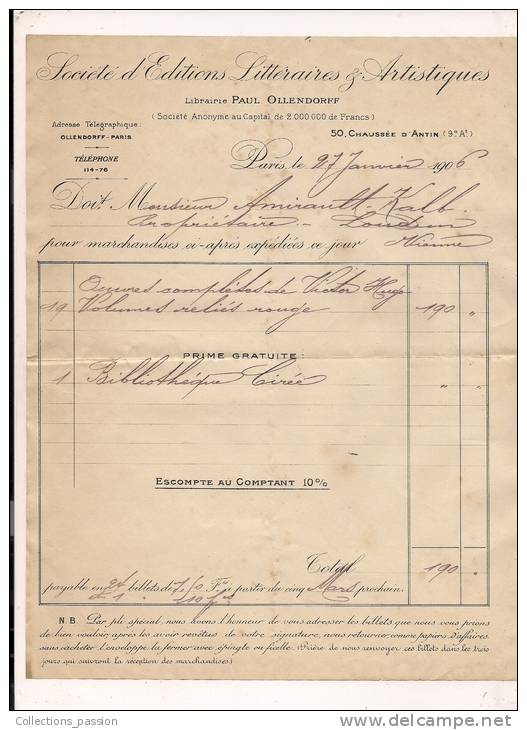 Société d'Editions Littéraires & Artistiques
Librairie PAUL OLLENDORFF
(Société Anonyme au Capital de 2.000.000 de Francs)
Adresse Télégraphique:
OLLENDORFF-PARIS
TÉLÉPHONE
114-76
50, CHAUSSÉE D'ANTIN (9e At)
Paris, le 27 Janvier 1906
Doit Monsieur Amirault-Kalb
Propriétaire - Loudun
pour marchandises ci-après expédiées ce jour Vienne
Œuvres complètes de Victor Hugo
19 Volumes reliés rouge 190 "
PRIME GRATUITE:
1 Bibliothèque Cirée " "
ESCOMPTE AU COMPTANT 10%
Total 190 "
payable en 24 billets de 7.50 Frs à partir du cinq Mars prochain.
1
N.B. Par pli spécial nous avons l'honneur de vous adresser les billets que nous vous prions
de bien vouloir, après les avoir revêtus de votre signature, nous retourner, comme papiers d'affaires
sans cacheter l'enveloppe, la fermer avec épingle ou ficelle. (Prière de nous renvoyer ces billets dans les trois
jours qui suivront la réception des marchandises)
Collections_passion
www.delcampe.net